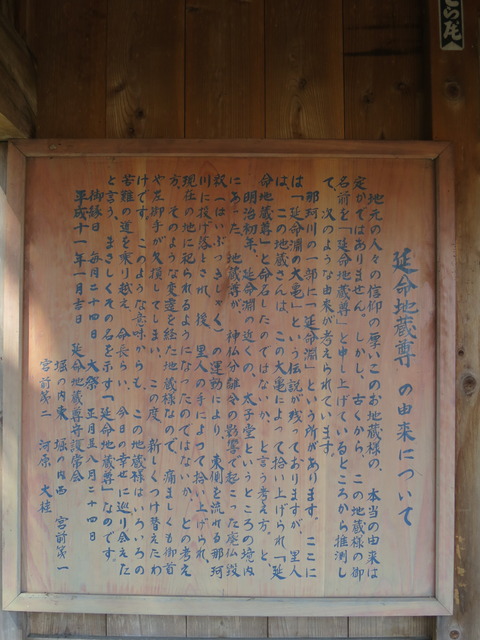 とら屋
延命地蔵尊の由来について
地元の人々の信仰の厚いこのお地蔵様の、本当の由来は
定かではありません。しかし、古くから、この地蔵様の御
名前を「延命地蔵尊」と申し上げているところから推測し
て、次のような由来が考えられています。
那珂川の一部に「延命淵」という所があります。ここに
は「延命淵の大亀」という伝説が残っておりますが、里人
は、この地蔵さんは、この大亀によって拾い上げられ、「延
命地蔵尊」と命名したのではないか、と言う考え方と、
明治初年、延命淵の近くの、太子堂というところの境内
にあった、地蔵尊が、神仏分離令の影響で起こった廃仏毀
釈(はいぶつきしゃく)の運動により、東側を流れる那珂
川に投げ落とされ、後、里人の手によって拾い上げられ、
現在の地に祀られるようになったのではないか、との考え
方、そのような変遷を経た地蔵様なので、痛ましくも御首
や左御手が欠損してしまい、この度、新しくつけ替えたわ
けです。このような意味からも、この地蔵様はいろいろの
苦難の道を乗り越え、命長らい、今日の幸せに巡り会えた
と言う、まさしくその名を示す「延命地蔵尊」なのです。
御縁日 毎月二十四日 大祭 正月至八月二十四日
平成十一年一月吉日 延命地蔵尊守護常会
堀の内東 堀の内西 宮前第一
宮前第二 河原 大桂